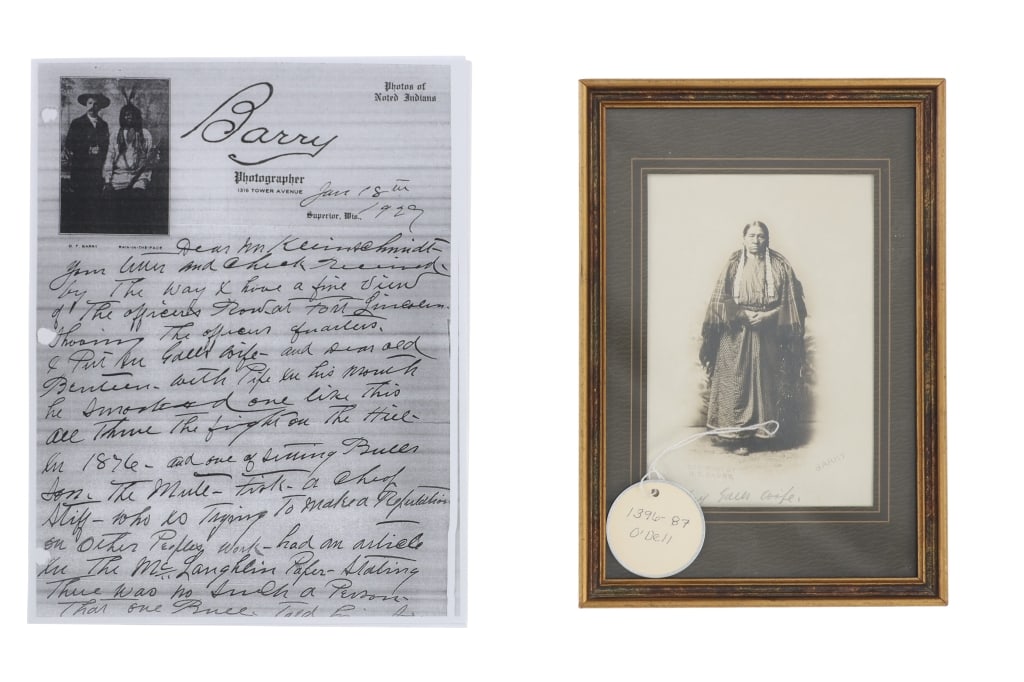 Photos of
Noted Indians
Barry
Photographer
1316 TOWER AVENUE
Superior, Wis., Jan 18th
1929
D. F. BARRY RAIN-IN-THE-FACE
Dear Mr Kleinschmidt-
your letter and check received-
by The way I have a fine view
of The officers Row at Fort Lincoln-
Showing The officers quarters.
I Put in Galls wife- and dear old
Benteen- with Pipe in his mouth
he smoked one like this
all Threw the fight on The Hill-
in 1876- and one of Sitting Bulls
Son. The Mute- Fisk- a cheap
Stiff- who is Trying To make a Reputation
on Other Peoples work- had an article
in The McLaughlin Paper- Stating
There was no such a Person-
That one Bull- Told
BARRY
Galls wife.
1396-87
O'Dell